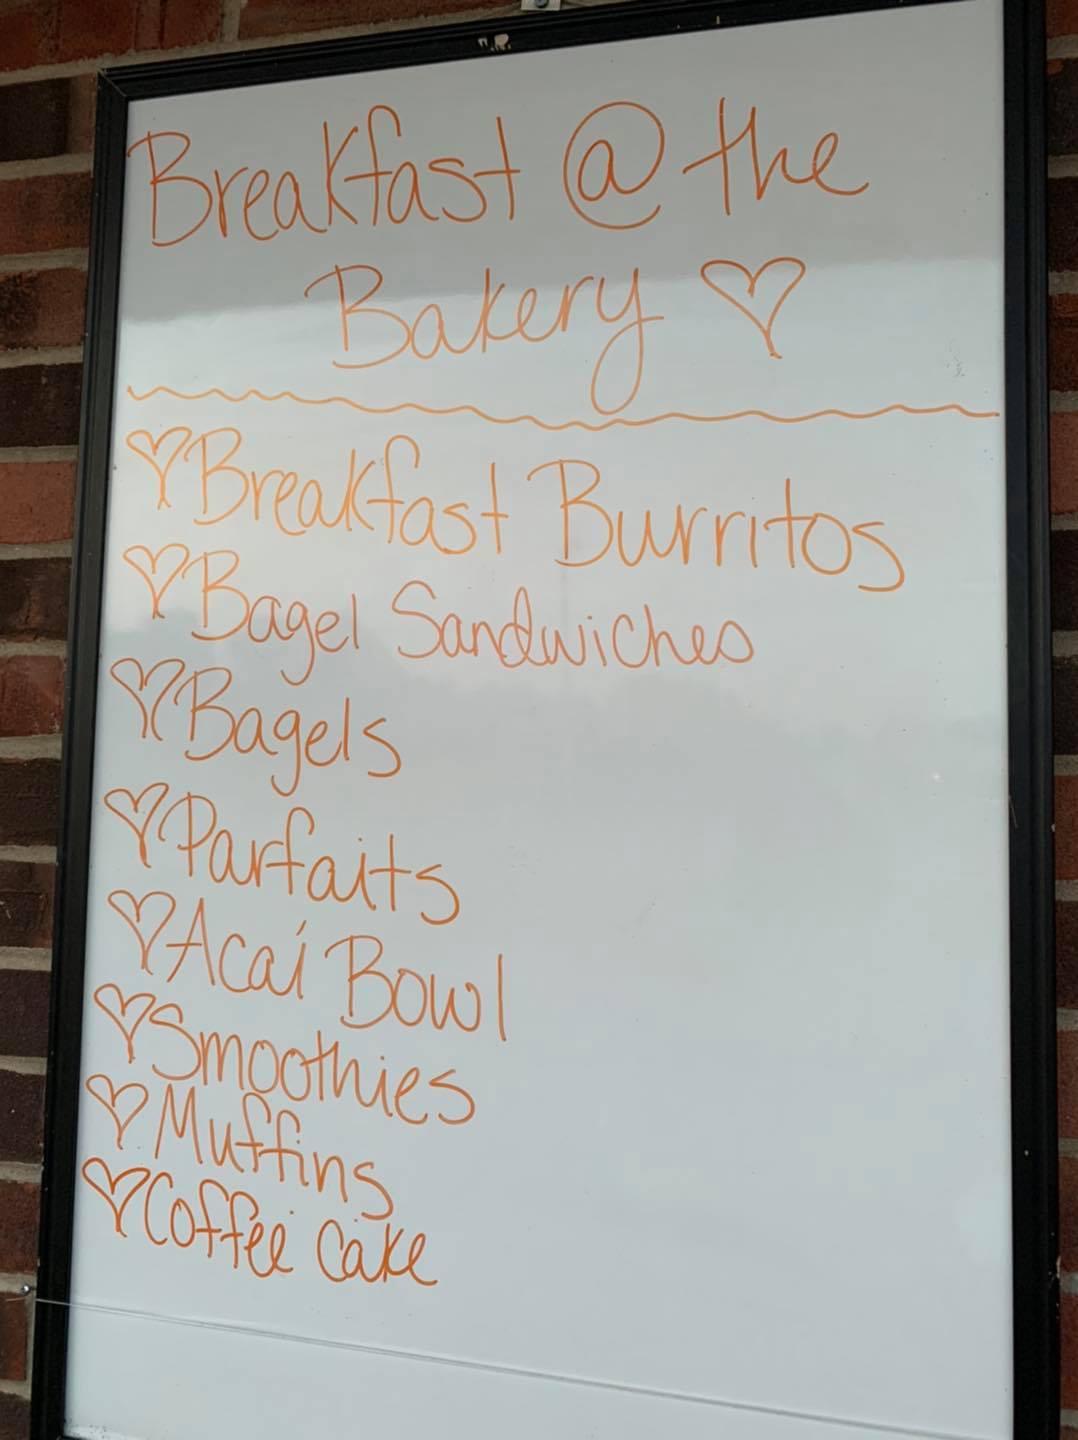 Breakfast @ the
Bakery ♡
♡ Breakfast Burritos
♡ Bagel Sandwiches
♡ Bagels
♡ Parfaits
♡ Acaí Bowl
♡ Smoothies
♡ Muffins
♡ Coffee Cake